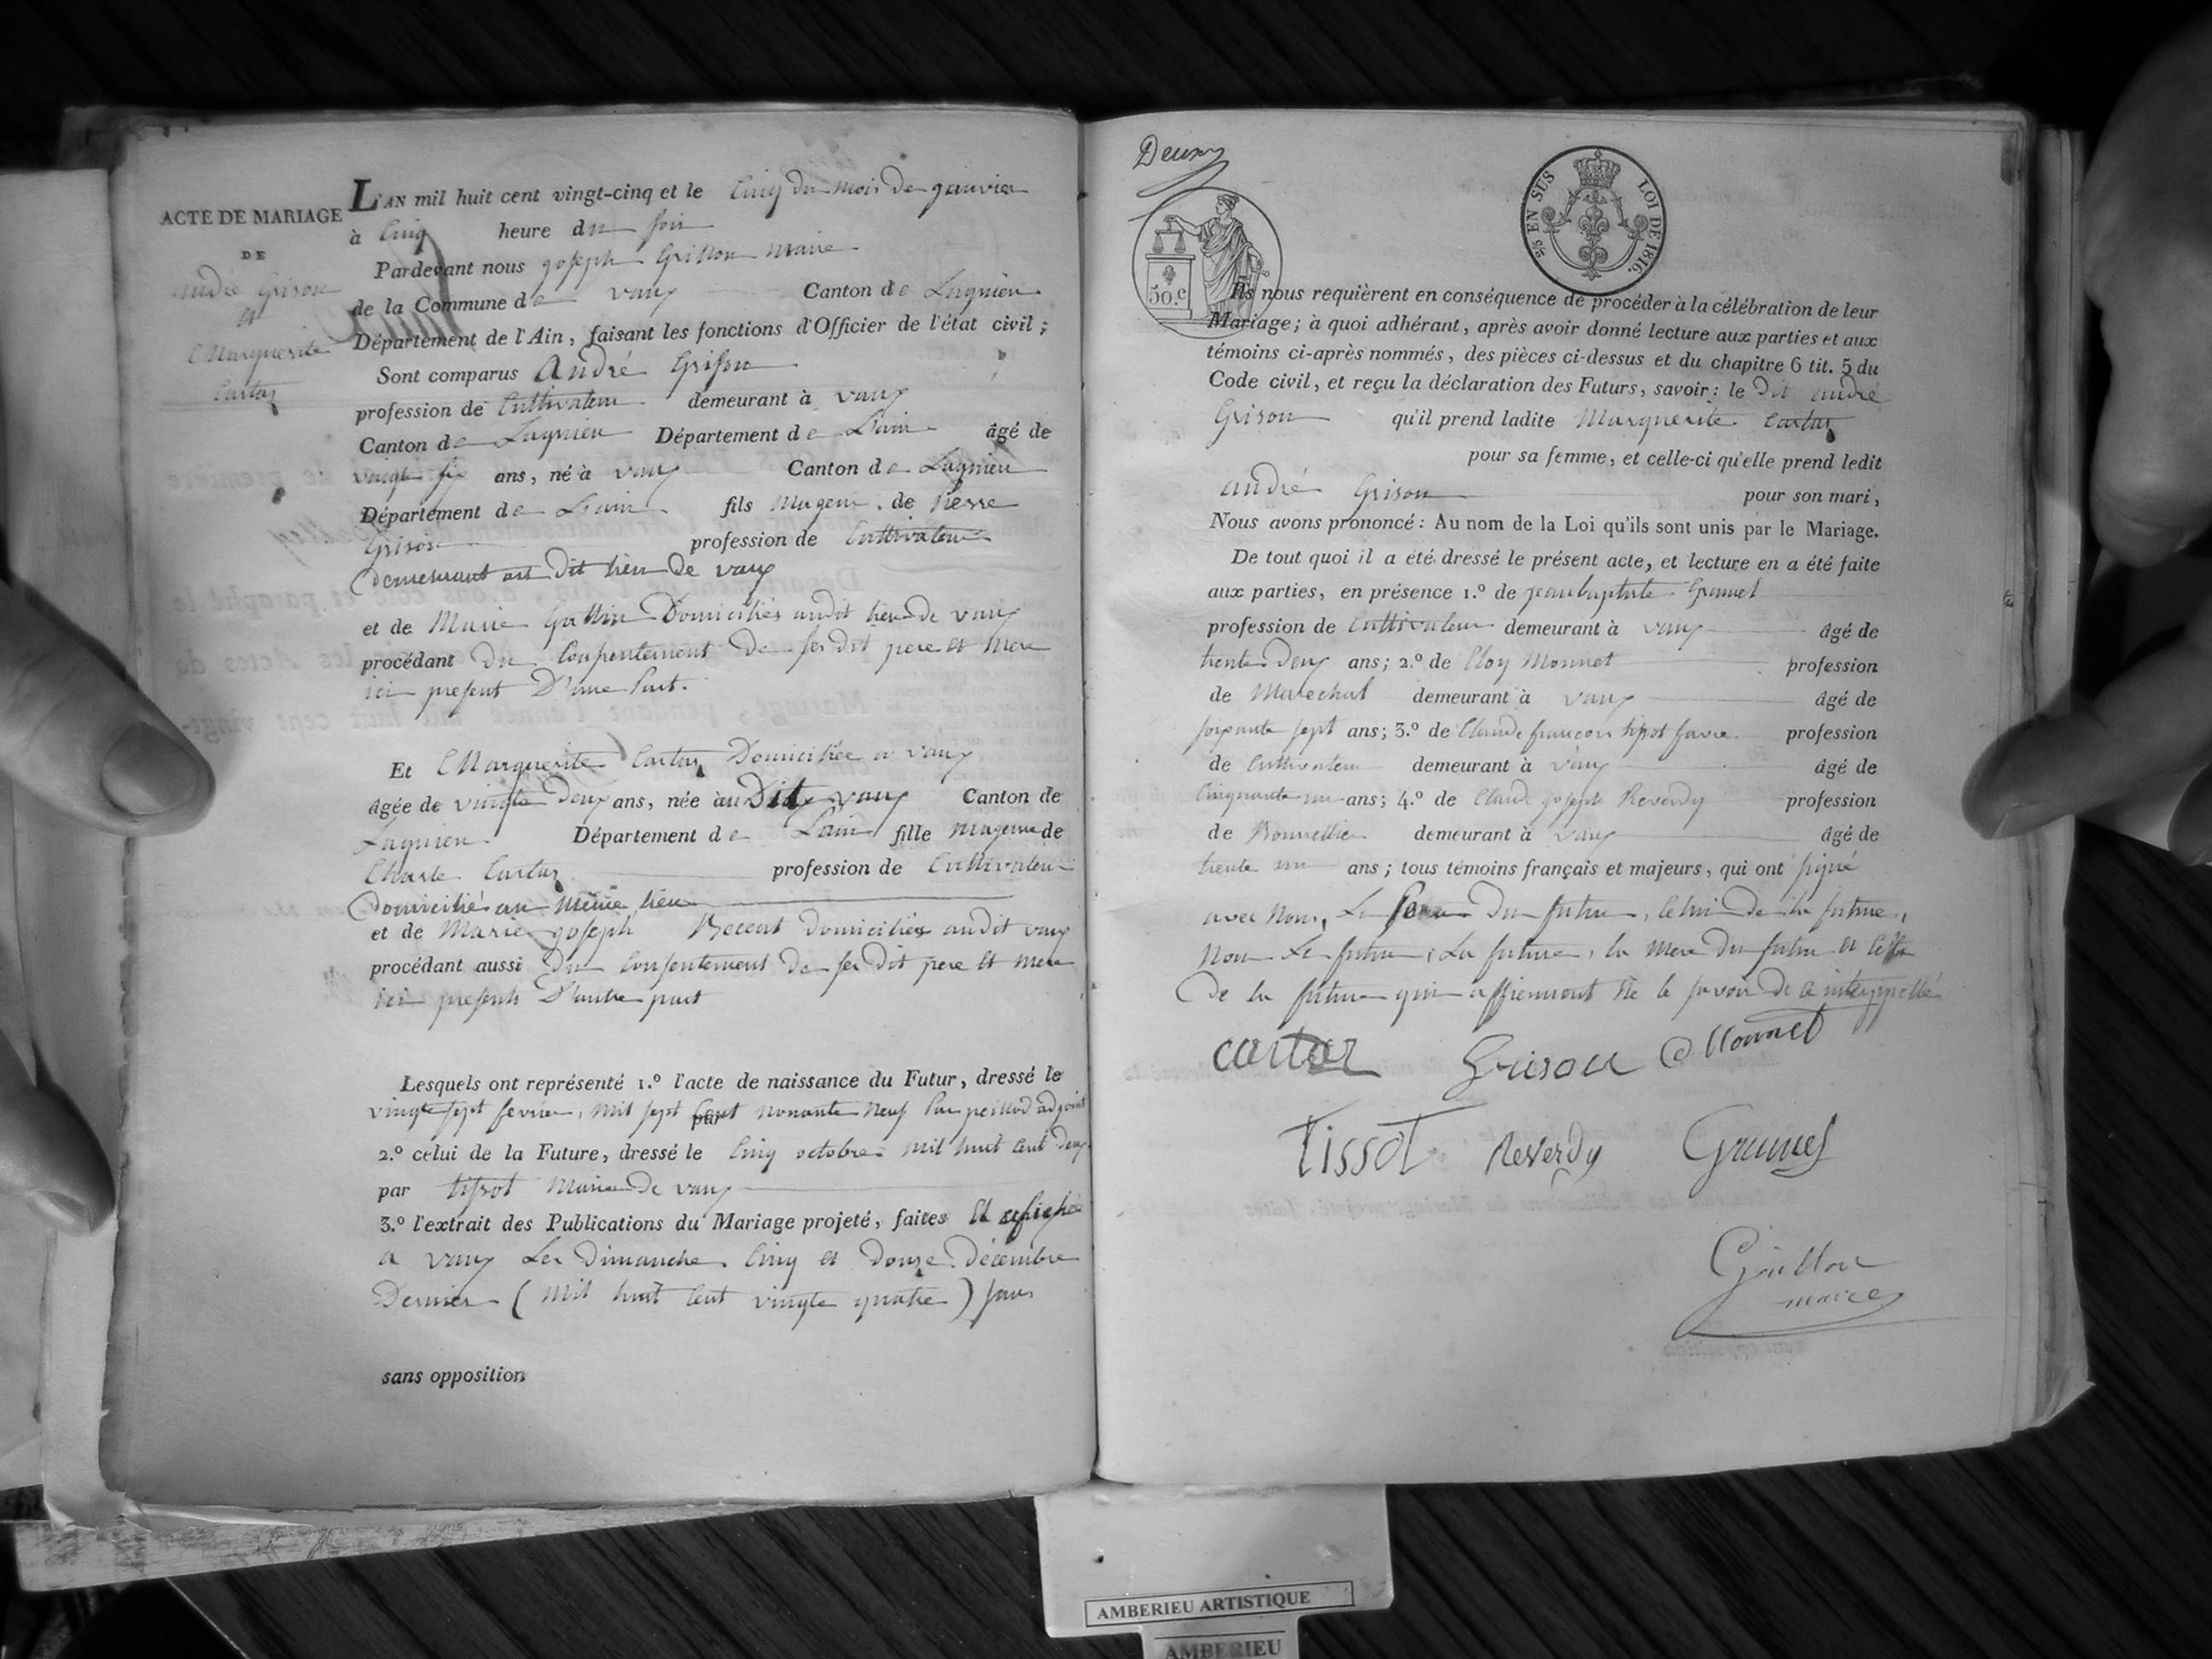 ACTE DE MARIAGE
DE
andré Grison
et
Marguerite
Cartaz
L'AN mil huit cent vingt-cinq et le Cinq du mois de janvier
à Cinq heure du soir
Pardevant nous joseph Grillon maire
de la Commune de vaux Canton de Lagnieu
Département de l'Ain, faisant les fonctions d'Officier de l'état civil;
Sont comparus André Grison
profession de Cultivateur demeurant à vaux
Canton de Lagnieu Département de L'ain âgé de
vingt six ans, né à vaux Canton de Lagnieu
Département de L'ain fils mageur de Pierre
Grison profession de Cultivateur
demeurant au dit lieu de vaux
et de Marie Domiciliés audit lieu de vaux
procédant du Consentement de ses dit pere et mere
ici present D'une Part.
Et Marguerite Cartaz Domiciliée a vaux
âgée de vingt deux ans, née au Dit vaux Canton de
Lagnieu Département de L'ain fille mageure de
Charle Cartaz profession de Cultivateur
Domicilié au même lieu
et de Marie joseph domiciliés audit vaux
procédant aussi du Consentement de ses dit pere et mere
ici presents D'autre part
Lesquels ont représenté 1.º l'acte de naissance du Futur, dressé le
vingt sept fevrier, mil sept cent nonante neuf Par peillod adjoint
2.º celui de la Future, dressé le Cinq octobre mil huit cent deux
par tissot maire de vaux
3.º l'extrait des Publications du Mariage projeté, faites Et afichée
a vaux Les Dimanche Cinq et douze décembre
Dernier (mil huit Cent vingte quatre) sans
sans opposition
Deux
50.c
EN SUS
LOI DE 1816.
Ils nous requièrent en conséquence de procéder à la célébration de leur
Mariage; à quoi adhérant, après avoir donné lecture aux parties et aux
témoins ci-après nommés, des pièces ci-dessus et du chapitre 6 tit. 5 du
Code civil, et reçu la déclaration des Futurs, savoir: le Dit andré
Grison qu'il prend ladite Marguerite Cartaz
pour sa femme, et celle-ci qu'elle prend ledit
andré Grison pour son mari,
Nous avons prononcé: Au nom de la Loi qu'ils sont unis par le Mariage.
De tout quoi il a été dressé le présent acte, et lecture en a été faite
aux parties, en présence 1.º de jeanbaptiste Grumel
profession de Cultivateur demeurant à vaux âgé de
trente Deux ans; 2.º de Eloy Monnet profession
de Marechal demeurant à vaux âgé de
soixante sept ans; 3.º de Claude francois tissot favre profession
de Cultivateur demeurant à vaux âgé de
Cinquante un ans; 4.º de Claude joseph Reverdy profession
de demeurant à vaux âgé de
trente un ans; tous témoins français et majeurs, qui ont signé
avec nous, Le Pere Du futur, Celui de la future,
non Le futur, La future, la mere du futur et Celle
De la future qui affierment ne le savoir de ce interppellé
cartaz Grison Monnet
Tissot Reverdy Grumel
Grillon
maire
AMBERIEU ARTISTIQUE
AMBERIEU